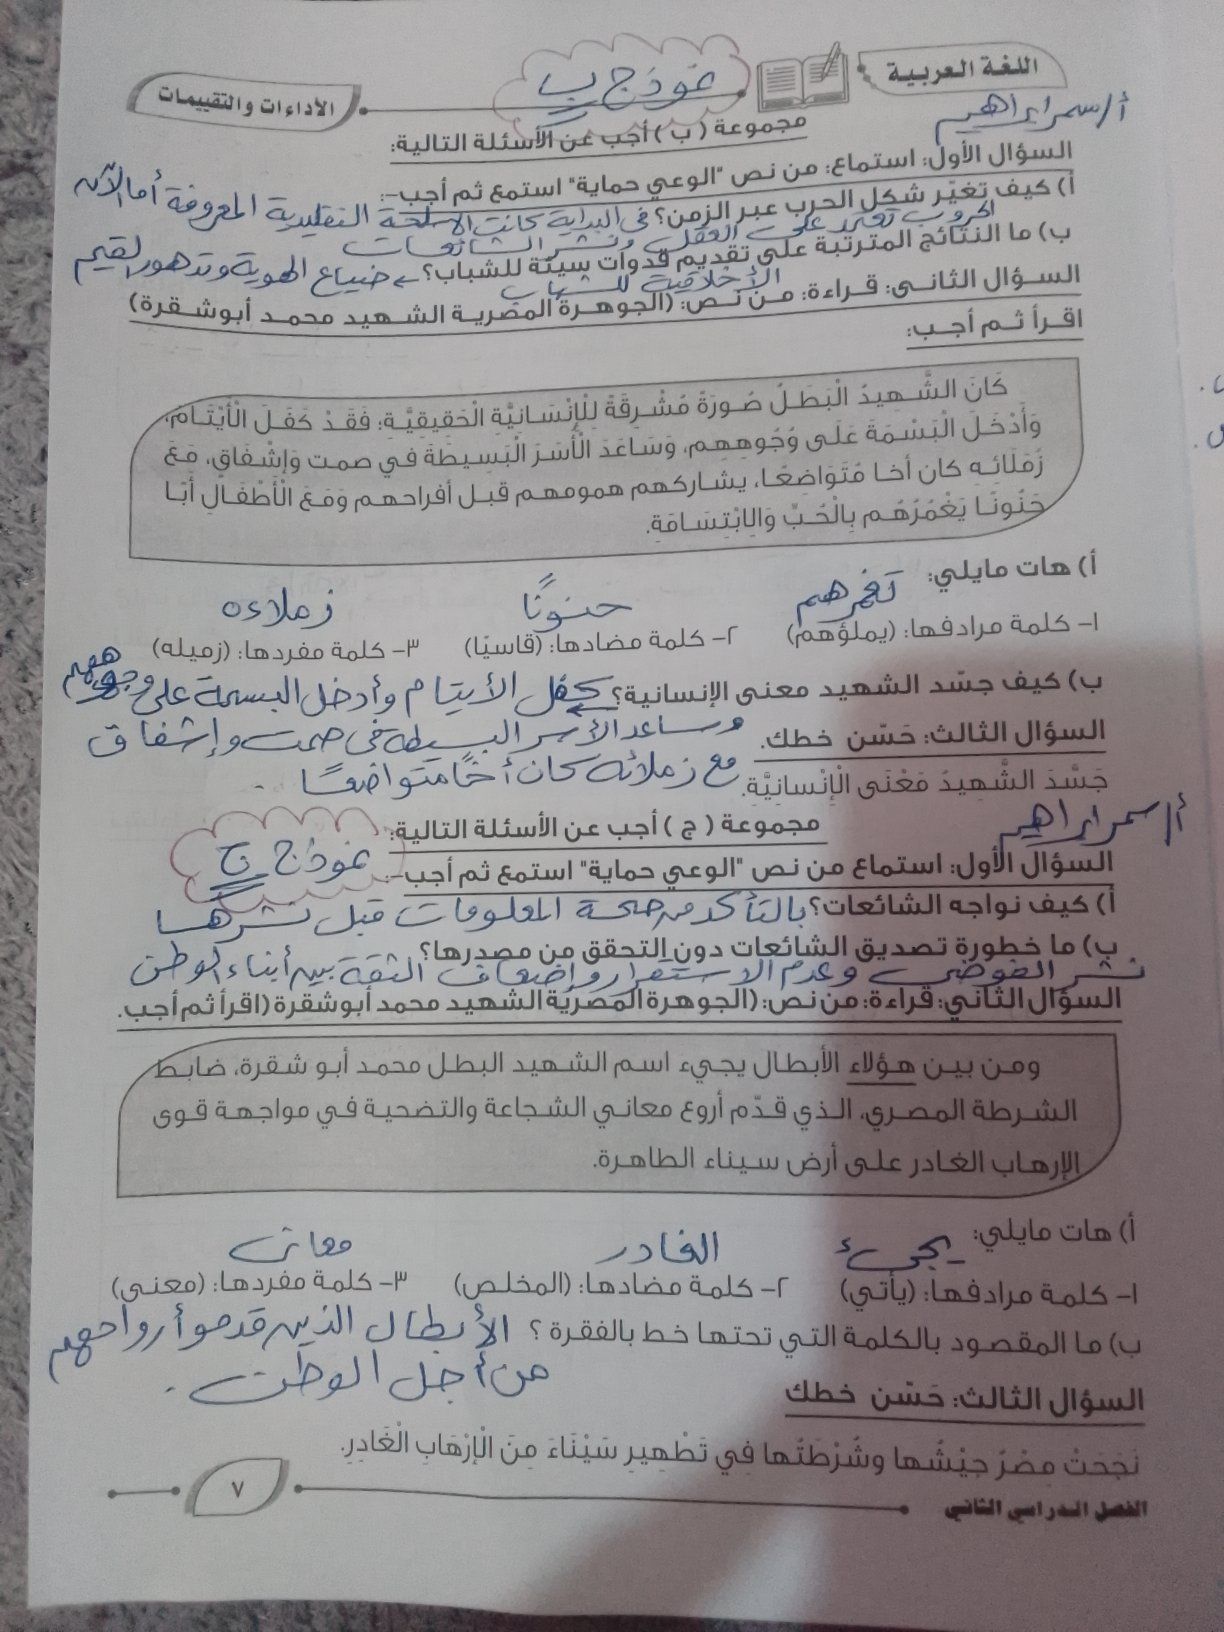 اللغة العربية
نموذج ب
الأداءات والتقييمات
أ/سمر ابراهيم
مجموعة ( ب ) أجب عن الأسئلة التالية:
السؤال الأول: استماع: من نص "الوعي حماية" استمع ثم أجب:-
أ) كيف تغيّر شكل الحرب عبر الزمن؟ في البداية كانت الأسلحة التقليدية المعروفة أما الآن
الحروب تعتمد على العقل ونشر الشائعات
ب) ما النتائج المترتبة على تقديم قدوات سيئة للشباب؟ ← ضياع الهوية وتدهور القيم
الأخلاقية للشباب
السؤال الثانى: قراءة: من نص: (الجوهرة المصرية الشهيد محمد أبوشقرة)
اقرأ ثم أجب:
كَانَ الشَّهِيدُ الْبَطَلُ صُورَةً مُشْرِقَةً لِلْإِنْسَانِيَّةِ الْحَقِيقِيَّةِ؛ فَقَدْ كَفَلَ الْأَيْتَامَ،
وَأَدْخَلَ الْبَسْمَةَ عَلَى وُجُوهِهِم، وَسَاعَدَ الْأُسَرَ الْبَسِيطَةَ في صمت وَإِشْفَاقٍ، مَعَ
زُمَلَائِهِ كان أخا مُتَوَاضِعًا، يشاركهم همومهم قبل أفراحهم وَمَعَ الْأَطْفَالِ أَبًا
حَنُونًا يَغْمُرُهُم بِالْحُبِّ وَالِابْتِسَامَةِ.
أ) هات مايلي:
تغمرهم حنونًا زملاءه
١- كلمة مرادفها: (يملؤهم) ٢- كلمة مضادها: (قاسيًا) ٣- كلمة مفردها: (زميله)
ب) كيف جسّد الشهيد معنى الإنسانية؟ كفل الأيتام وأدخل البسمة على وجوههم
وساعد الأسر البسيطة في صمت وإشفاق
السؤال الثالث: حَسّن خطك.
مع زملائه كان أخًا متواضعًا .
جَسَّدَ الشَّهِيدُ مَعْنَى الْإِنْسانِيَّةِ.
أ/سمر ابراهيم
مجموعة ( ج ) أجب عن الأسئلة التالية:
نموذج ج
السؤال الأول: استماع من نص "الوعي حماية" استمع ثم أجب:-
أ) كيف نواجه الشائعات؟ بالتأكد من صحة المعلومات قبل نشرها
ب) ما خطورة تصديق الشائعات دون التحقق من مصدرها؟
نشر الفوضى وعدم الاستقرار وإضعاف الثقة بين أبناء الوطن
السؤال الثاني: قراءة: من نص: (الجوهرة المصرية الشهيد محمد أبوشقرة (اقرأ ثم أجب.
ومن بين هؤلاء الأبطال يجيء اسم الشهيد البطل محمد أبو شقرة، ضابط
الشرطة المصري، الذي قدّم أروع معاني الشجاعة والتضحية في مواجهة قوى
الإرهاب الغادر على أرض سيناء الطاهرة.
أ) هات مايلي:
يجيء الغادر معاني
١- كلمة مرادفها: (يأتي) ٢- كلمة مضادها: (المخلص) ٣- كلمة مفردها: (معنى)
ب) ما المقصود بالكلمة التي تحتها خط بالفقرة ؟ الأبطال الذين قدموا أرواحهم
من أجل الوطن .
السؤال الثالث: حَسّن خطك
نَجَحَتْ مِصْرُ جيْشُها وشُرْطَتُها فِي تَطْهِيرِ سَيْنَاءَ مِنَ الْإِرْهَابِ الْغَادِرِ.
٧
الفصل الدراسي الثاني